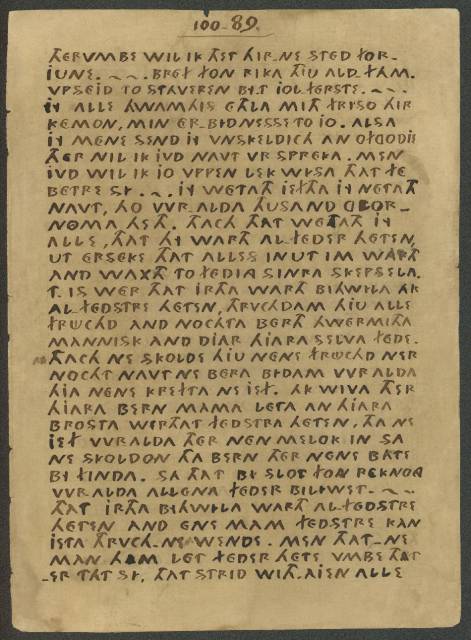 100-89.
THERVMBE WIL IK THET HIR-NE STED FOR-
IUNE. ~ ~ ~. BREF FON RIKA THIU ALD. FAM.
VPSEID TO STAVEREN BY.T IOL FERSTE. ~ ~.
IY ALLE HWAM HIS ETHLA MITH FRISO HIR
KEMON, MIN ER_BIDNESSE TO IO. ALSA
IY MENE SEND IY VNSKELDICH AN OFGODIE
THER NIL IK IVD NAVT VR SPREKA. MEN
IVD WIL IK IO VPPEN LEK WYSA THAT FE
BETRE SY. ~. IY WETATH IEFTHA IY NETATH
NAVT, HO WR_ALDA THUSAND GLOR_
NOMA HETH. THACH THAT WETATH IY
ALLE, THAT HY WARTH AL_FEDER HETEN,
UT ERSEKE THAT ALLES IN UT IM WARTH
AND WAXTH TO FEDIA SINRA SKEPSELA.
T. IS WER THAT IRTHA WARTH BIHWYLA AK
AL_FEDSTRE HETEN, THRVCHDAM HIU ALLE
FRUCHD AND NOCHTA BERTH HWERMITHA
MANNISK AND DIAR HIARA SELVA FEDE.
THACH NE SKOLDE HIU NENE FRUCHD NER
NOCHT NAVT NE BERA BIDAM WRALDA
HIA NENE KREFTA NE IEF. AK WIVA THER
HIARA BERN MAMA LETA AN HIARA
BROSTA WERTHAT FEDSTRA HETEN, THA NE
IEF WRALDA THER NEN MELOK IN SA
NE SKOLDON THA BERN THER NENE BATE
BY FINDA. SA THAT BY SLOT FON REKNONG
WRALDA ALLENA FEDER BILIWET. ~ ~
THAT IRTHA BIHWYLA WARTH AL_FEDSTRE
HETEN AND ENE MAM FEDSTRE KAN
IETA THRVCH_NE WENDE. MEN THAT_NE
MAN HAM LET FEDER HETE VMBE THAT
_ER TAT SY, THAT STRID WITH.AIEN ALLE